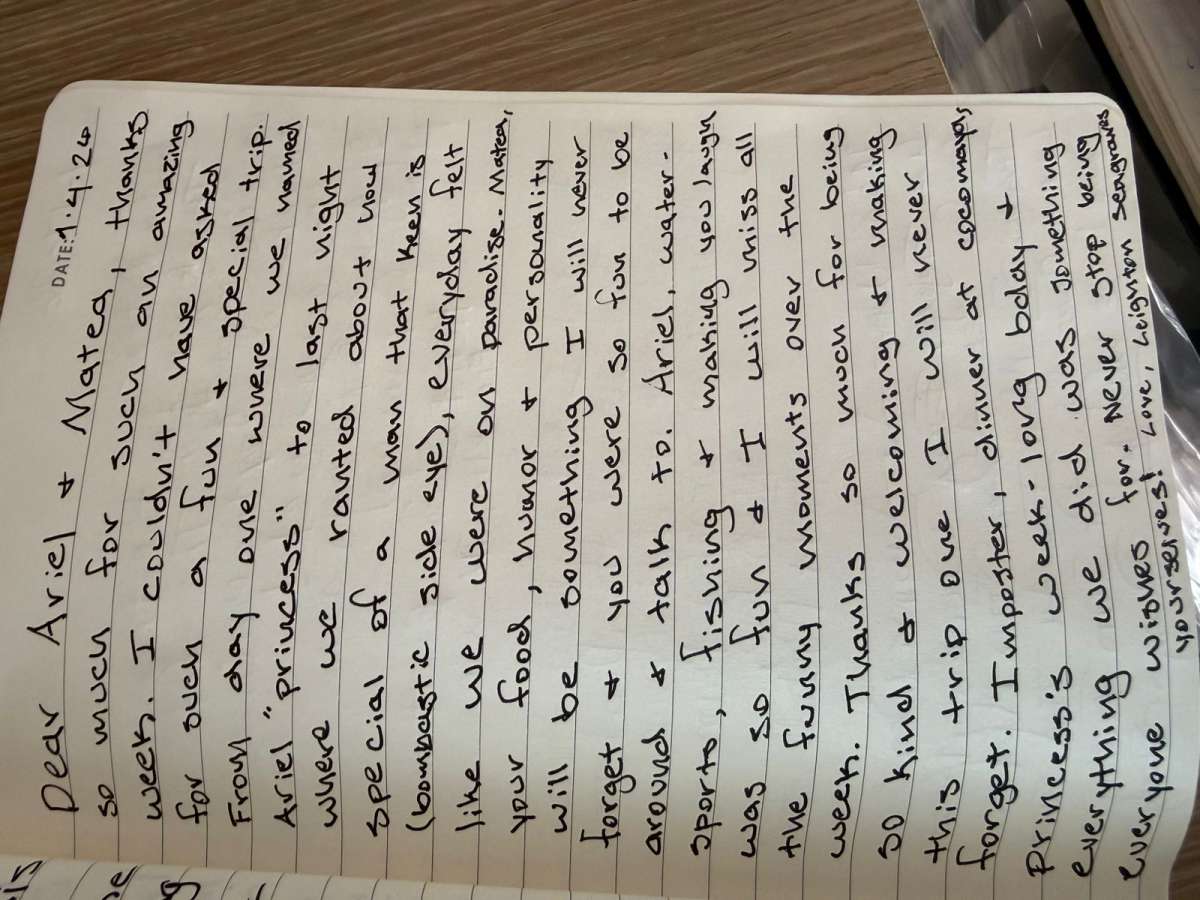 DATE: 1.4.24
Dear Ariel & Matea, thanks
so much for such an amazing
week. I couldn't have asked
for such a fun & special trip.
From day one where we named
Ariel "princess" to last night
where we ranted about how
special of a man that Keen is
(bombastic side eye), everyday felt
like we were on paradise. Matea,
your food, humor & personality
will be something I will never
forget & you were so fun to be
around & talk to. Ariel, water-
sports, fishing & making you laugh
was so fun & I will miss all
the funny moments over the
week. Thanks so much for being
so kind & welcoming & making
this trip one I will never
forget. Imposter, dinner at cocomaya,
Princess's week-long bday &
everything we did was something
everyone wishes for. Never stop being
yourselves! Love, Leighton Seagraves